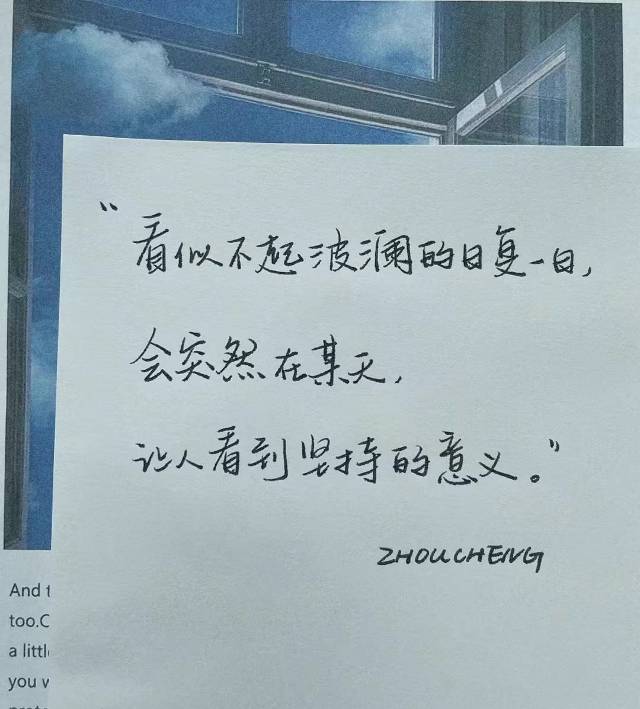 “看似不起波澜的日复一日,
会突然在某天,
让人看到坚持的意义。”
ZHOUCHENG
And t
too.C
a littl
you w